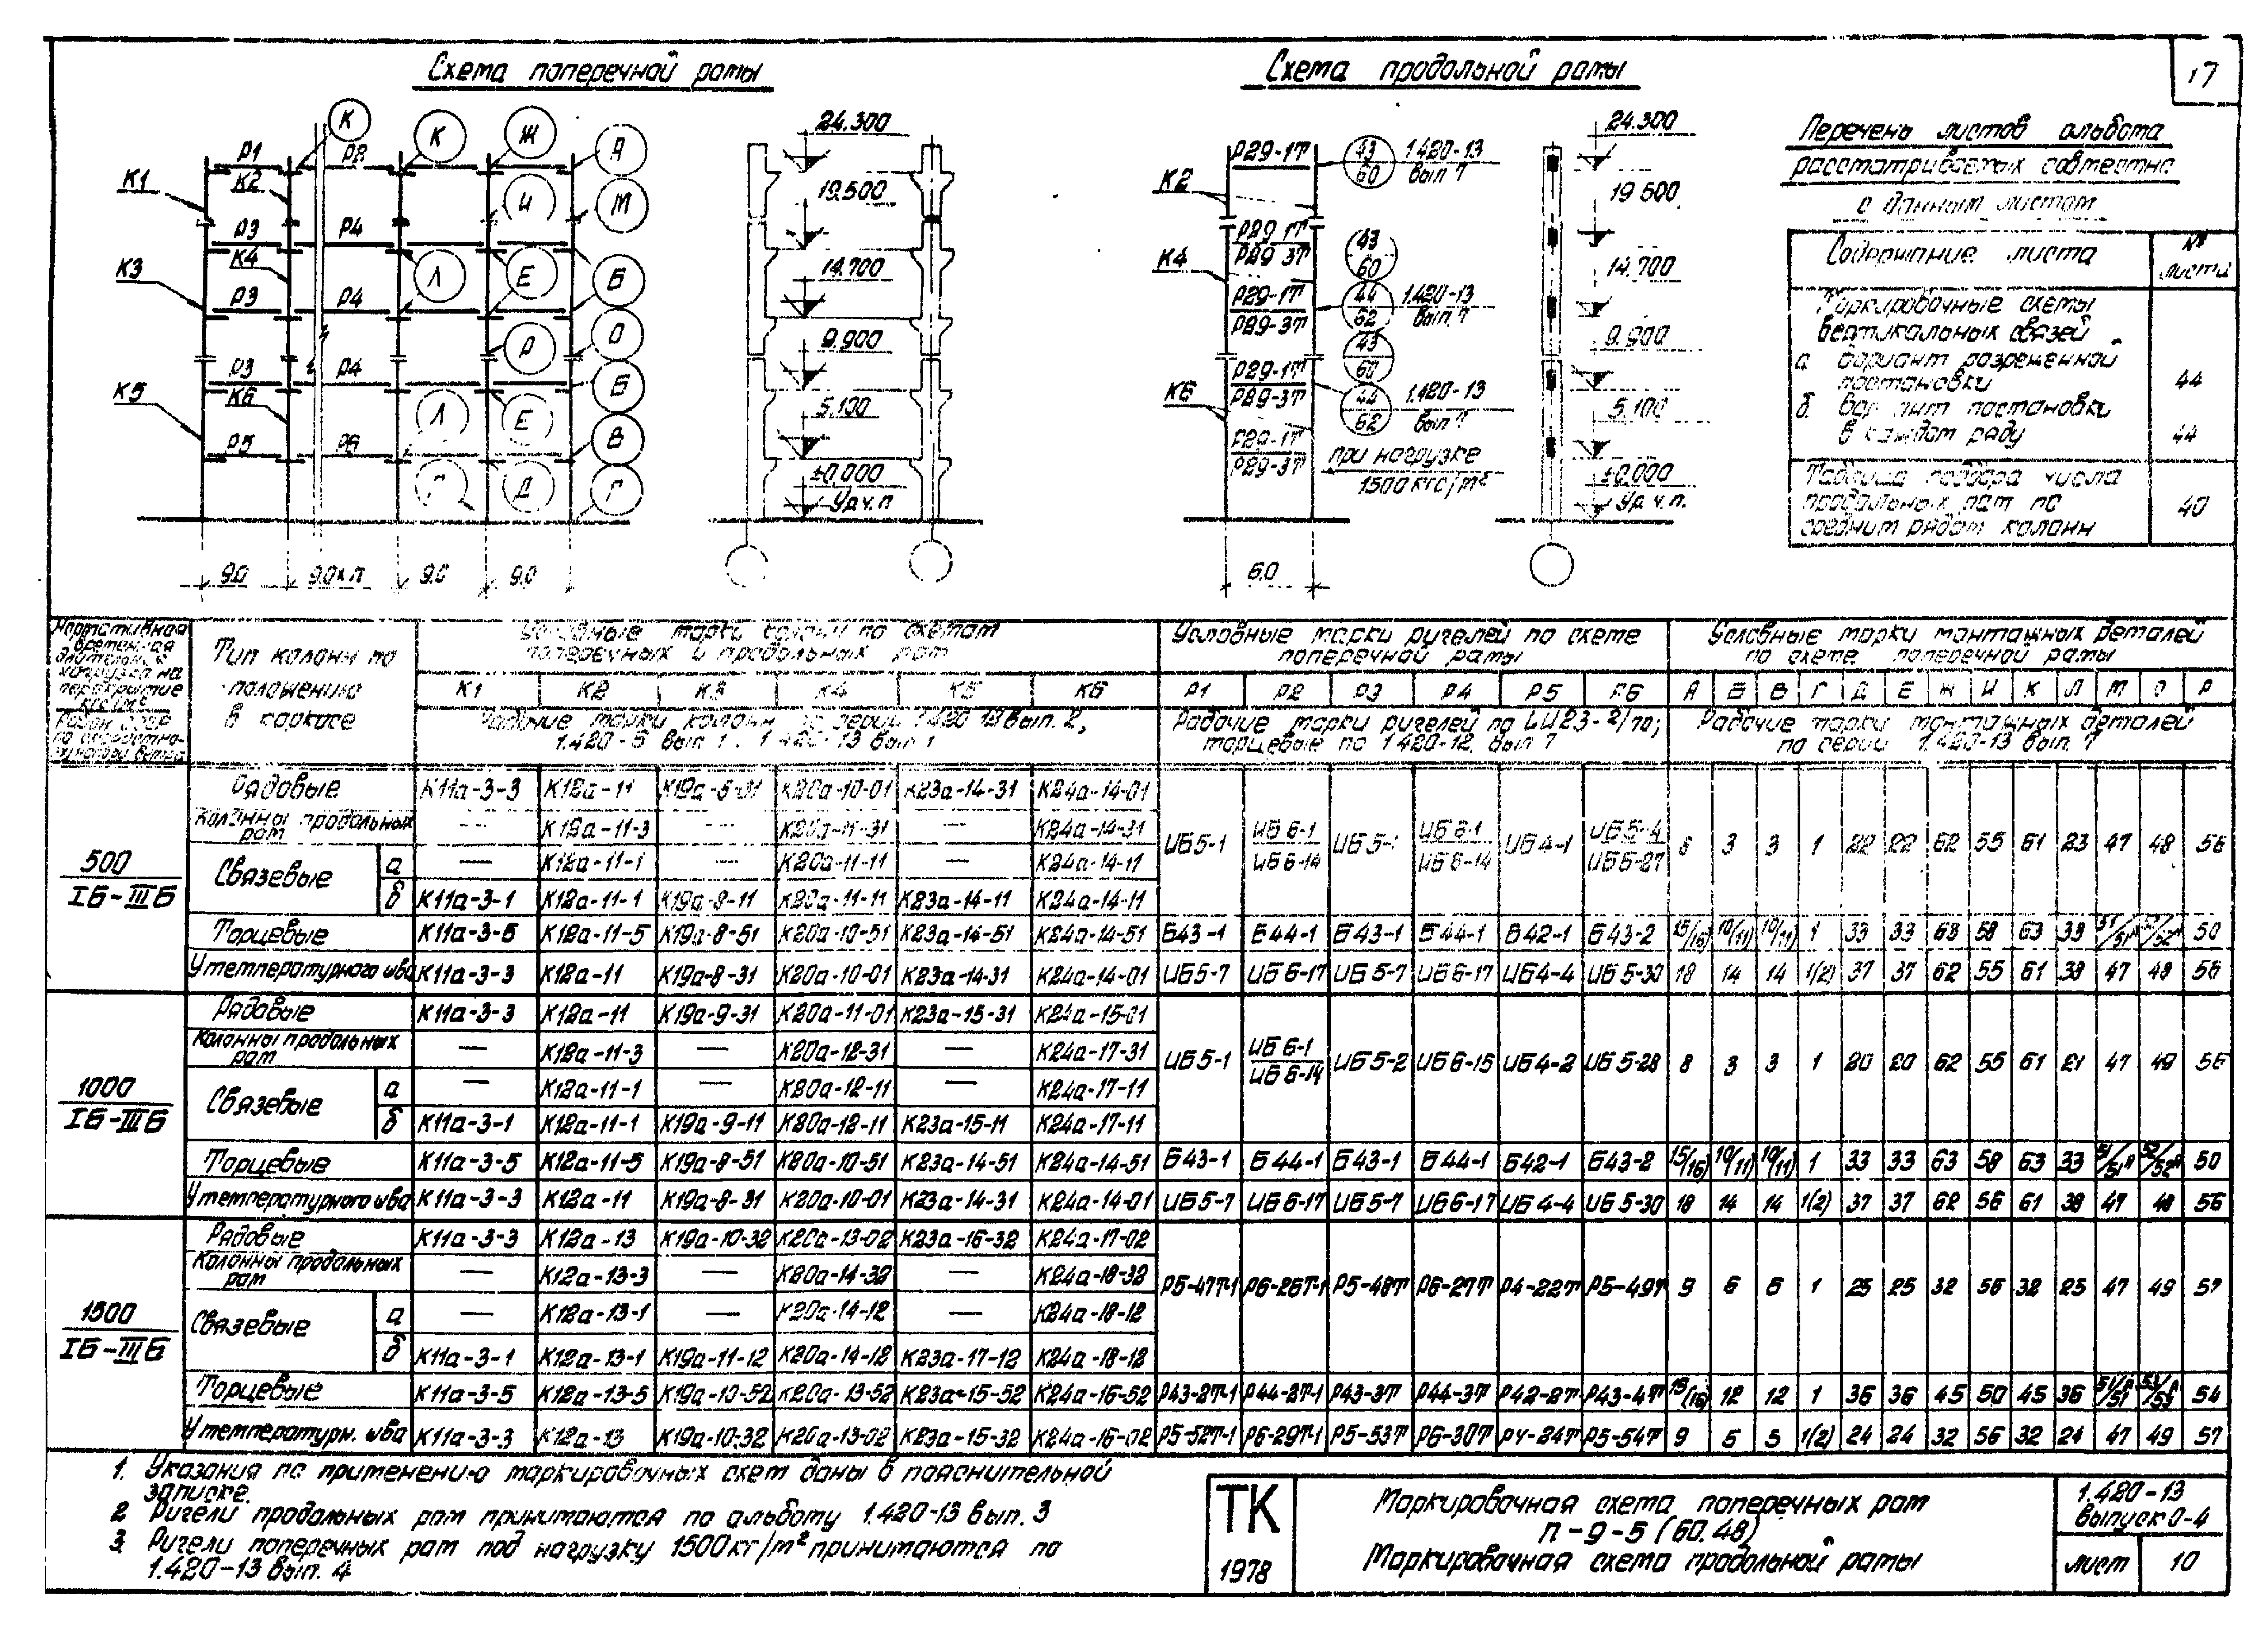 17
Схема поперечной рамы
К К Ж А
Р1 Р2
К1 К2 И М
24.300
19.500
Р3 Р4
К3 К4 Л Е Б
14.700
Р3 Р4
Р О
9.900
Р3 Р4
К5 К6 Л Е Б
5.100
Р5 Р6 В
Г Д Г
±0.000
Ур.ч.п.
9.0 9.0хп 9.0 9.0
Схема продольной рамы
Р29-1т 43 60 1.420-13 вып 7
К2
24.300
19.500
Р29-1т
Р29-3т
43 60
К4
14.700
Р29-1т
Р29-3т
44 62 1.420-13 вып 7
9.900
43 60
Р29-1т
Р29-3т
К6 44 62 1.420-13 вып 7
5.100
Р29-1т
Р29-3т
при нагрузке
1500 кгс/м²
±0.000
Ур.ч.п.
6.0
Перечень листов альбома
рассматриваемых совместно
с данным листом
Содержание листа № листа
Маркировочные схемы
вертикальных связей
а вариант разреженной
постановки 44
б вариант постановки
в каждом ряду 44
Таблица подбора числа
продольных рам по
средним рядам колонн 40
Нормативная временная длительная нагрузка на перекрытие кгс/м²
Тип колонн по положению в каркасе
Условные марки колонн по схемам поперечных и продольных рам
Условные марки ригелей по схеме поперечной рамы
Условные марки монтажных деталей по схеме поперечной рамы
К1 К2 К3 К4 К5 К6 Р1 Р2 Р3 Р4 Р5 Р6 А Б В Г Д Е Ж И К Л М О Р
Рабочие марки колонн по серии 1.420-13 вып. 2, 1.420-6 вып 1. 1.420-13 вып 1
Рабочие марки ригелей по ИИ23-2/70; торцевые по 1.420-12, вып 7
Рабочие марки монтажных деталей по серии 1.420-13 вып. 7
500
IБ-IIIБ
Рядовые К11а-3-3 К12а-11 К19а-8-31 К20а-10-01 К23а-14-31 К24а-14-01
Колонны продольных рам — К12а-11-3 — К20а-11-31 — К24а-14-31
ИБ5-1 ИБ6-1/ИБ6-14 ИБ5-1 ИБ6-1/ИБ6-14 ИБ4-1 ИБ5-4/ИБ5-27 8 3 3 1 22 22 62 55 61 23 47 48 56
Связевые а — К12а-11-1 — К20а-11-11 — К24а-14-11
б К11а-3-1 К12а-11-1 К19а-8-11 К20а-11-11 К23а-14-11 К24а-14-11
Торцевые К11а-3-5 К12а-11-5 К19а-8-51 К20а-10-51 К23а-14-51 К24а-14-51 Б43-1 Б44-1 Б43-1 Б44-1 Б42-1 Б43-2 15/(16) 10/(11) 10/(11) 1 33 33 63 58 63 33 51/51н 52/52н 50
У температурного шва К11а-3-3 К12а-11 К19а-8-31 К20а-10-01 К23а-14-31 К24а-14-01 ИБ5-7 ИБ6-17 ИБ5-7 ИБ6-17 ИБ4-4 ИБ5-30 18 14 14 1(2) 37 37 62 55 61 38 47 48 56
1000
IБ-IIIБ
Рядовые К11а-3-3 К12а-11 К19а-9-31 К20а-11-01 К23а-15-31 К24а-15-01
Колонны продольных рам — К12а-11-3 — К20а-12-31 — К24а-17-31
ИБ5-1 ИБ6-1/ИБ6-14 ИБ5-2 ИБ6-15 ИБ4-2 ИБ5-28 8 3 3 1 20 20 62 55 61 21 47 49 56
Связевые а — К12а-11-1 — К20а-12-11 — К24а-17-11
б К11а-3-1 К12а-11-1 К19а-9-11 К20а-12-11 К23а-15-11 К24а-17-11
Торцевые К11а-3-5 К12а-11-5 К19а-8-51 К20а-10-51 К23а-14-51 К24а-14-51 Б43-1 Б44-1 Б43-1 Б44-1 Б42-1 Б43-2 15/(16) 10/(11) 10/(11) 1 33 33 63 58 63 33 51/51н 52/52н 50
У температурного шва К11а-3-3 К12а-11 К19а-8-31 К20а-10-01 К23а-14-31 К24а-14-01 ИБ5-7 ИБ6-17 ИБ5-7 ИБ6-17 ИБ4-4 ИБ5-30 18 14 14 1(2) 37 37 62 56 61 38 47 48 56
1500
IБ-IIIБ
Рядовые К11а-3-3 К12а-13 К19а-10-32 К20а-13-02 К23а-16-32 К24а-17-02
Колонны продольных рам — К12а-13-3 — К20а-14-32 — К24а-18-32
Р5-47т-1 Р6-26т-1 Р5-48т Р6-27т Р4-22т Р5-49т 9 6 6 1 25 25 32 56 32 25 47 49 57
Связевые а — К12а-13-1 — К20а-14-12 — К24а-18-12
б К11а-3-1 К12а-13-1 К19а-11-12 К20а-14-12 К23а-17-12 К24а-18-12
Торцевые К11а-3-5 К12а-13-5 К19а-10-52 К20а-13-52 К23а-15-52 К24а-16-52 Р43-2т-1 Р44-2т-1 Р43-3т Р44-3т Р42-2т Р43-4т 15/(16) 12 12 1 36 36 45 50 45 36 54
У температурн. шва К11а-3-3 К12а-13 К19а-10-32 К20а-13-02 К23а-15-32 К24а-16-02 Р5-52т-1 Р6-29т-1 Р5-53т Р6-30т Р4-24т Р5-54т 9 5 5 1(2) 24 24 32 56 32 24 47 49 57
1. Указания по применению маркировочных схем даны в пояснительной
записке.
2 Ригели продольных рам принимаются по альбому 1.420-13 вып. 3
3. Ригели поперечных рам под нагрузку 1500кг/м² принимаются по
1.420-13 вып. 4
ТК
1978
Маркировочная схема поперечных рам
п-9-5 (60.48)
Маркировочная схема продольной рамы
1.420-13
Выпуск 0-4
лист 10